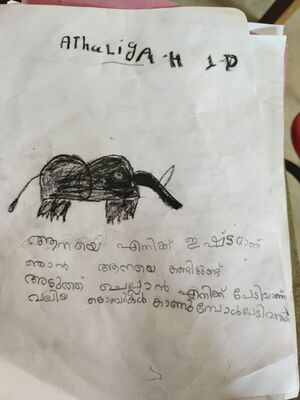 AThaLigA.H 1-D
ആനയെ എനിക്ക് ഇഷ്ടമാണ്
ഞാൻ ആനയെ കണ്ടിട്ടുണ്ട്
അടുത്ത് ചെല്ലാൻ എനിക്ക് പേടിയാണ്
വലിയ കൊമ്പുകൾ കാണുമ്പോൾ പേടിവരും